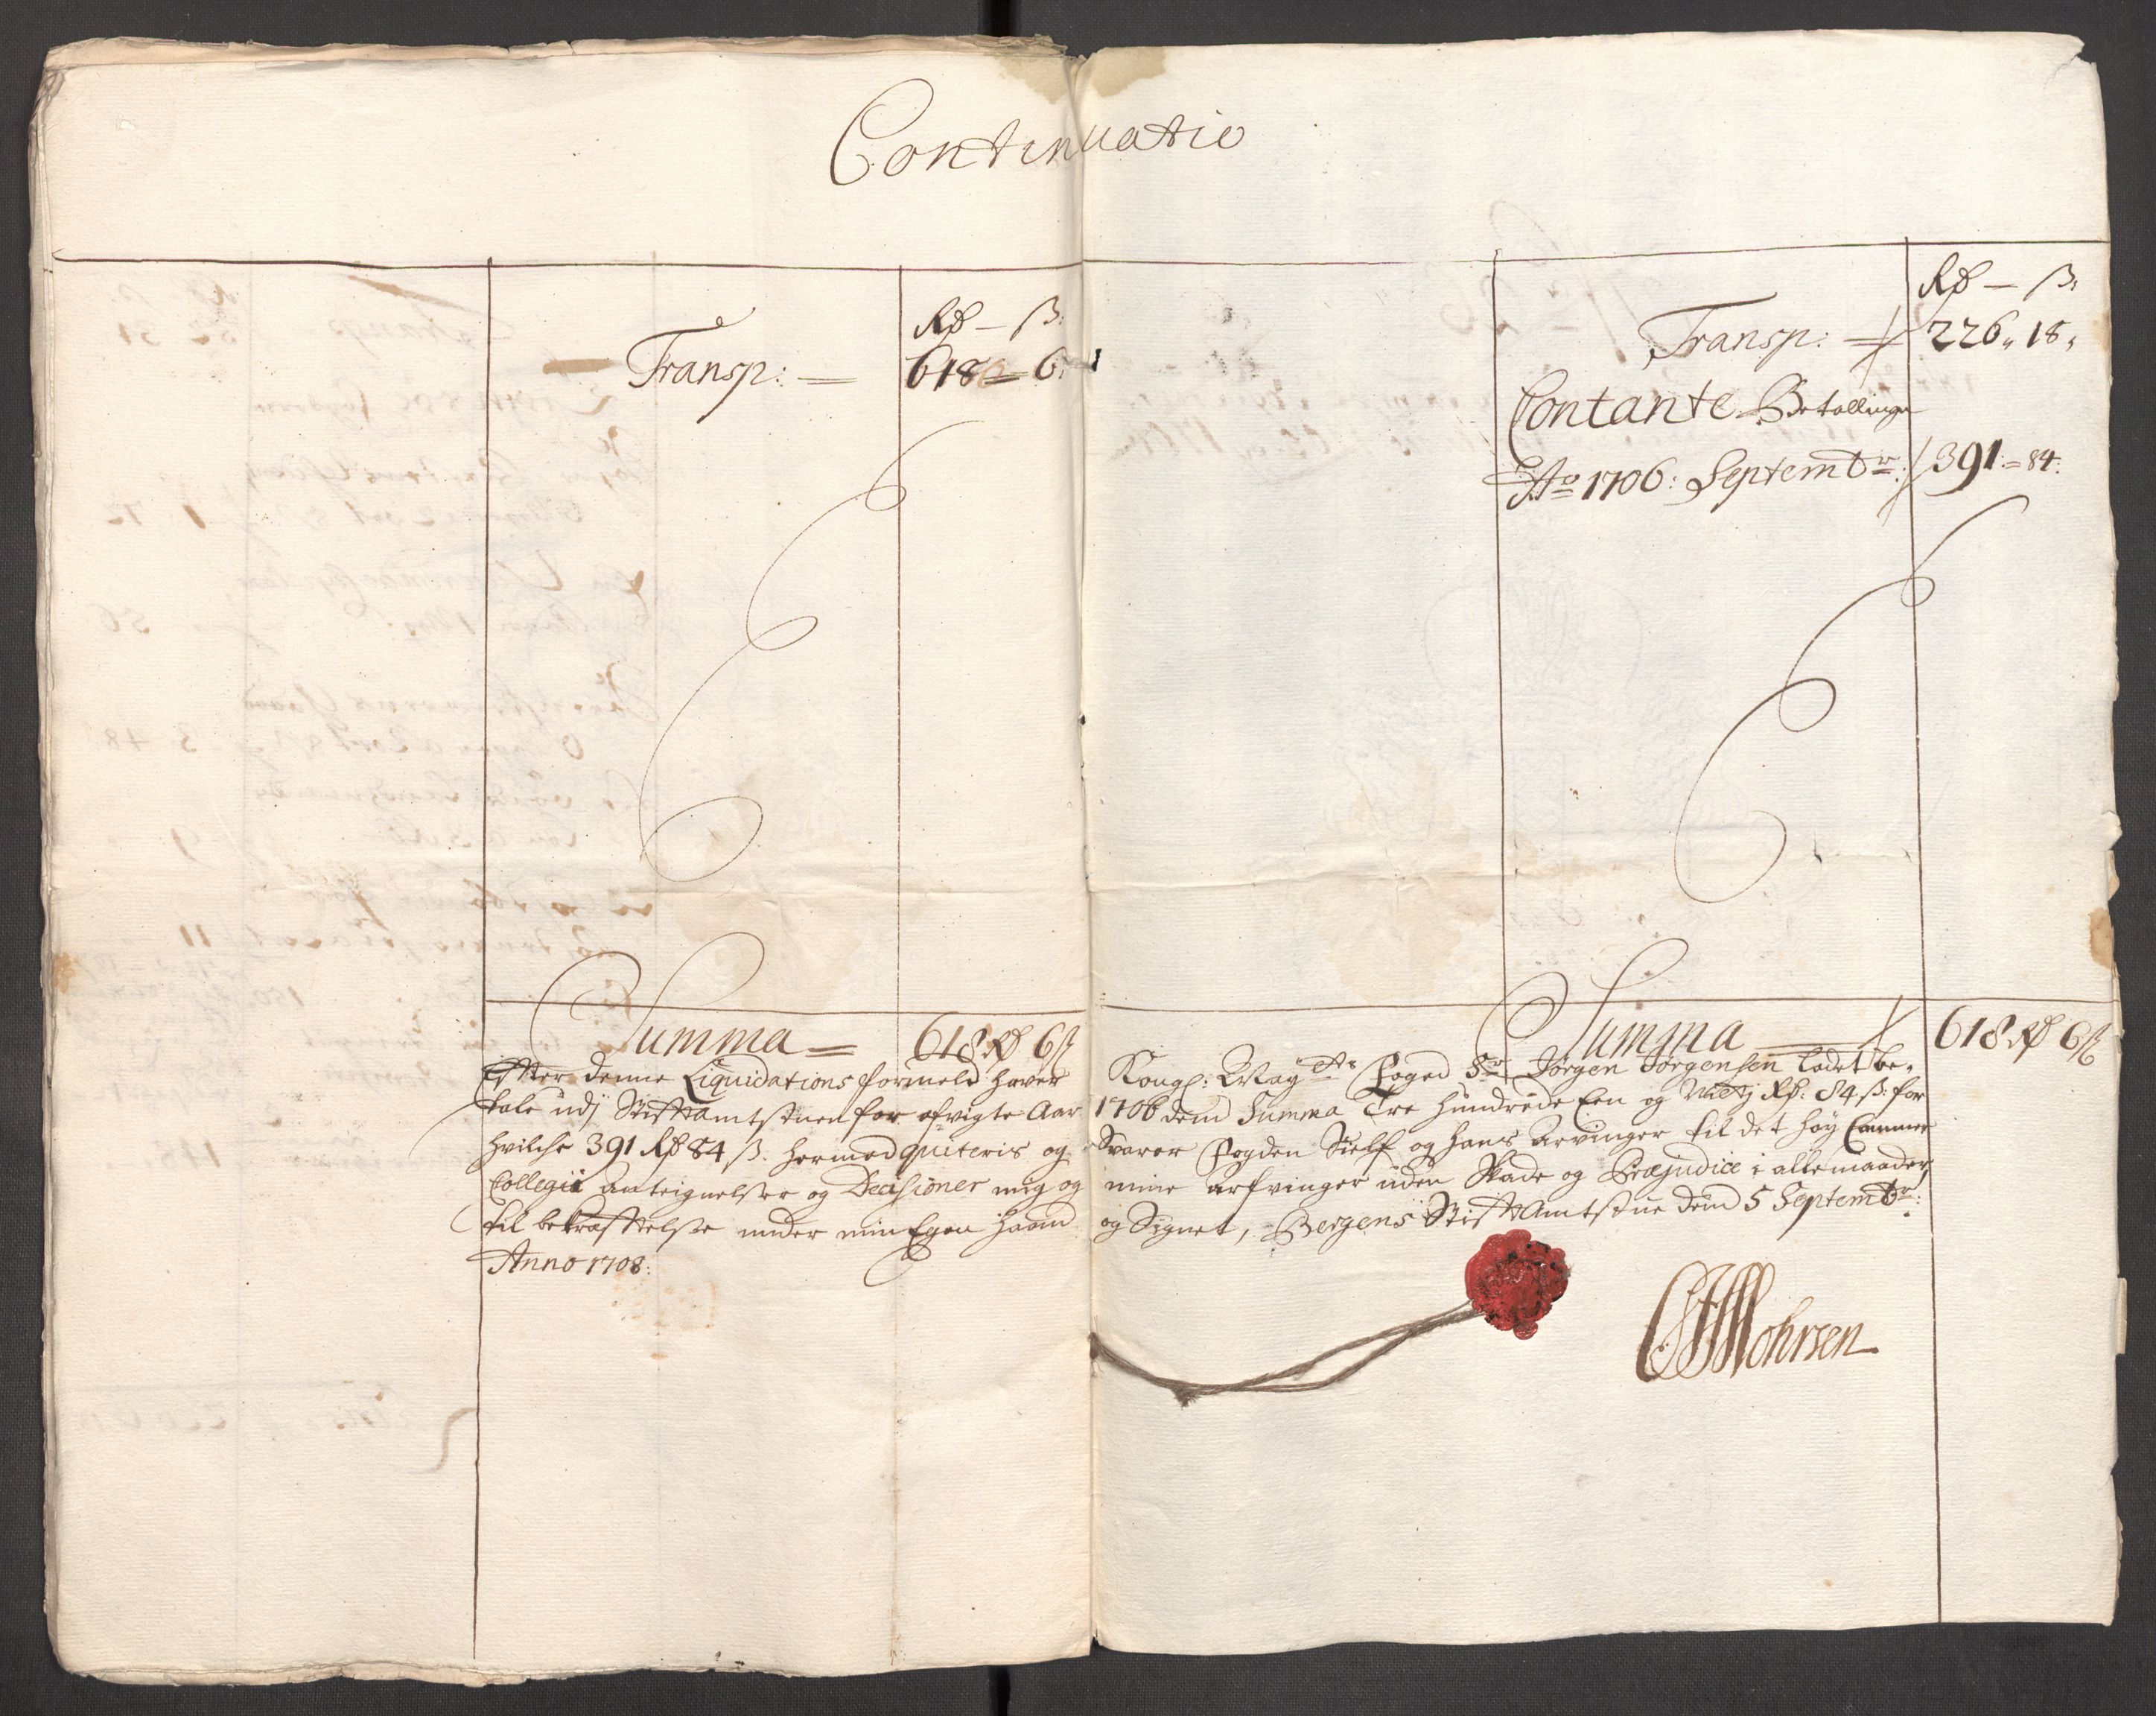 Continuatio
Rd — ß:
Transp: = 618 = 6:
Rd — ß:
Transp: = 226 „ 18 „
Contante Betallinger
Ao 1706: Septembr: 391 = 84:
Summa = 618 Rd 6 ß
Summa = 618 Rd 6 ß
Effter denne Liquidations formeld hafver Kongl: Mayts Foged Sr Jørgen Jørgensen ladet be-
tale udj Stifftamtstuen for afvigte Aar 1706 dend Summa Tre hundrede Een og Nietj Rd: 84 ß: for
hvilche 391 Rd 84 ß. hermed quiteris og Svarer Fogden Sielf og hans Arvinger til det høy Cammer
Collegii anteignelser og Decisioner mig og mine arfvinger uden Skade og Præjudice i alle maader,
til bekræfftelse under min Egen haand og Signet, Bergens Stifftamtstue dend 5 Septembr:
Anno 1708:
Mohrsen